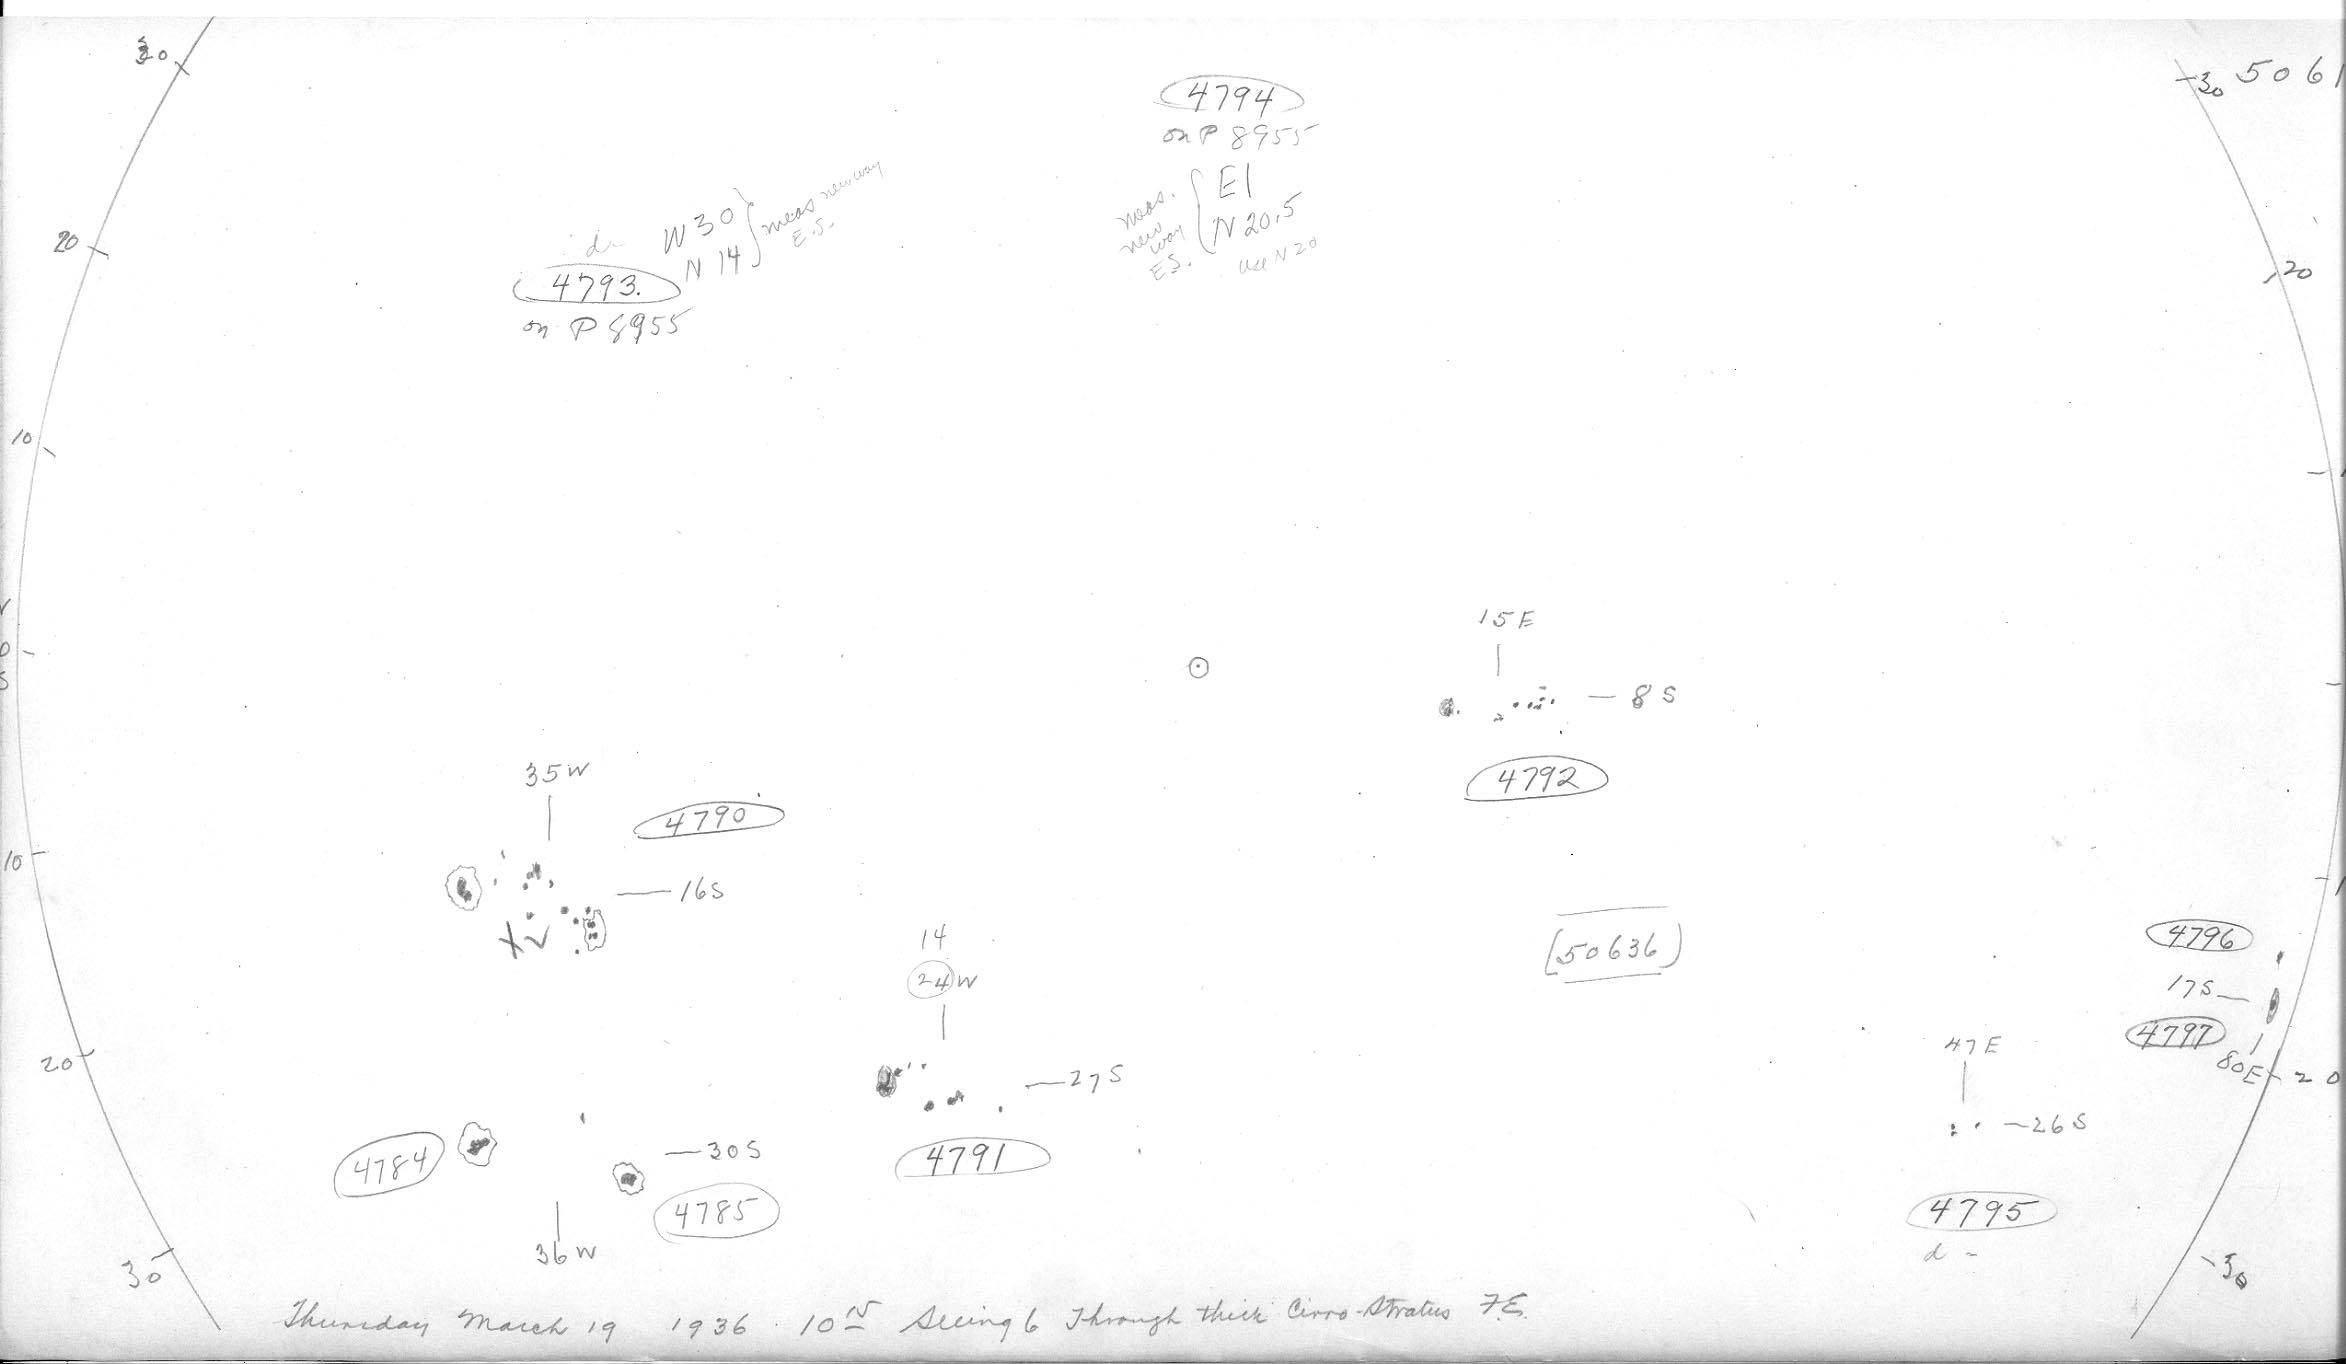 30
-30
5061
4794
on P 8955
E1
N 20.5
use N 20
meas.
new
way
E.S.
W 30
N 14
meas new way
E.S.
d-
4793.
on P 8955
20
20
10
15 E
8 S
4792
0
35 W
4790
16 S
10
14
24 W
27 S
4791
(50636)
4796
17 S
4797
80E
20
20
47 E
26 S
4795
d -
4784
30 S
4785
36 W
30
30
Thursday March 19 1936 10 15 Seeing 6 Through thick Cirro-Stratus F.E.